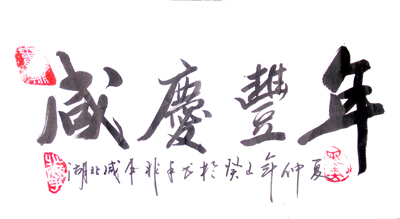 咸慶豐年
湖北咸 书於癸巳年仲夏